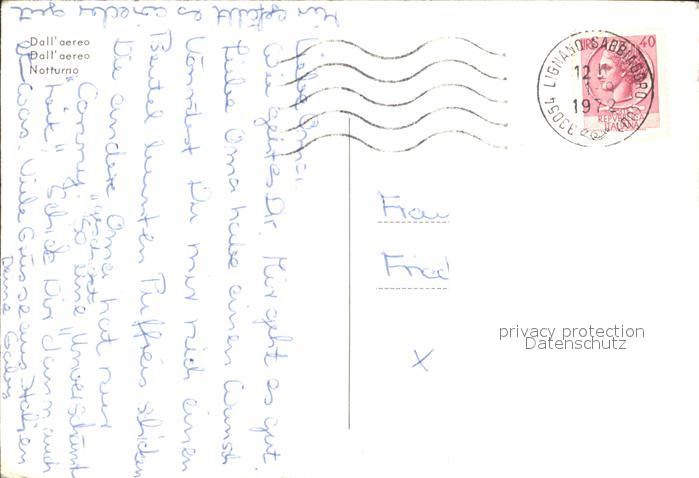 Dall'aereo
Dall'aereo
Notturno
Liebe Oma.
Wie geht es Dir. Mir geht es gut.
Liebe Oma habe einen Wunsch
könntest Du mir noch einen
Beutel bunten Puffreis schicken
Die andere Oma hat nur
"gesagt"
"Conny, so eine "Unverschämt
heit". Schick Dir dann auch
was. Viele Grüsse aus Italien
Deine Gaby
Mir gefällt es wieder gut
33054 LIGNANO SABBIADORO (UD)
12
1972
40
REPUBBLICA
ITALIANA
Frau
Fried
privacy protection
Datenschutz
X